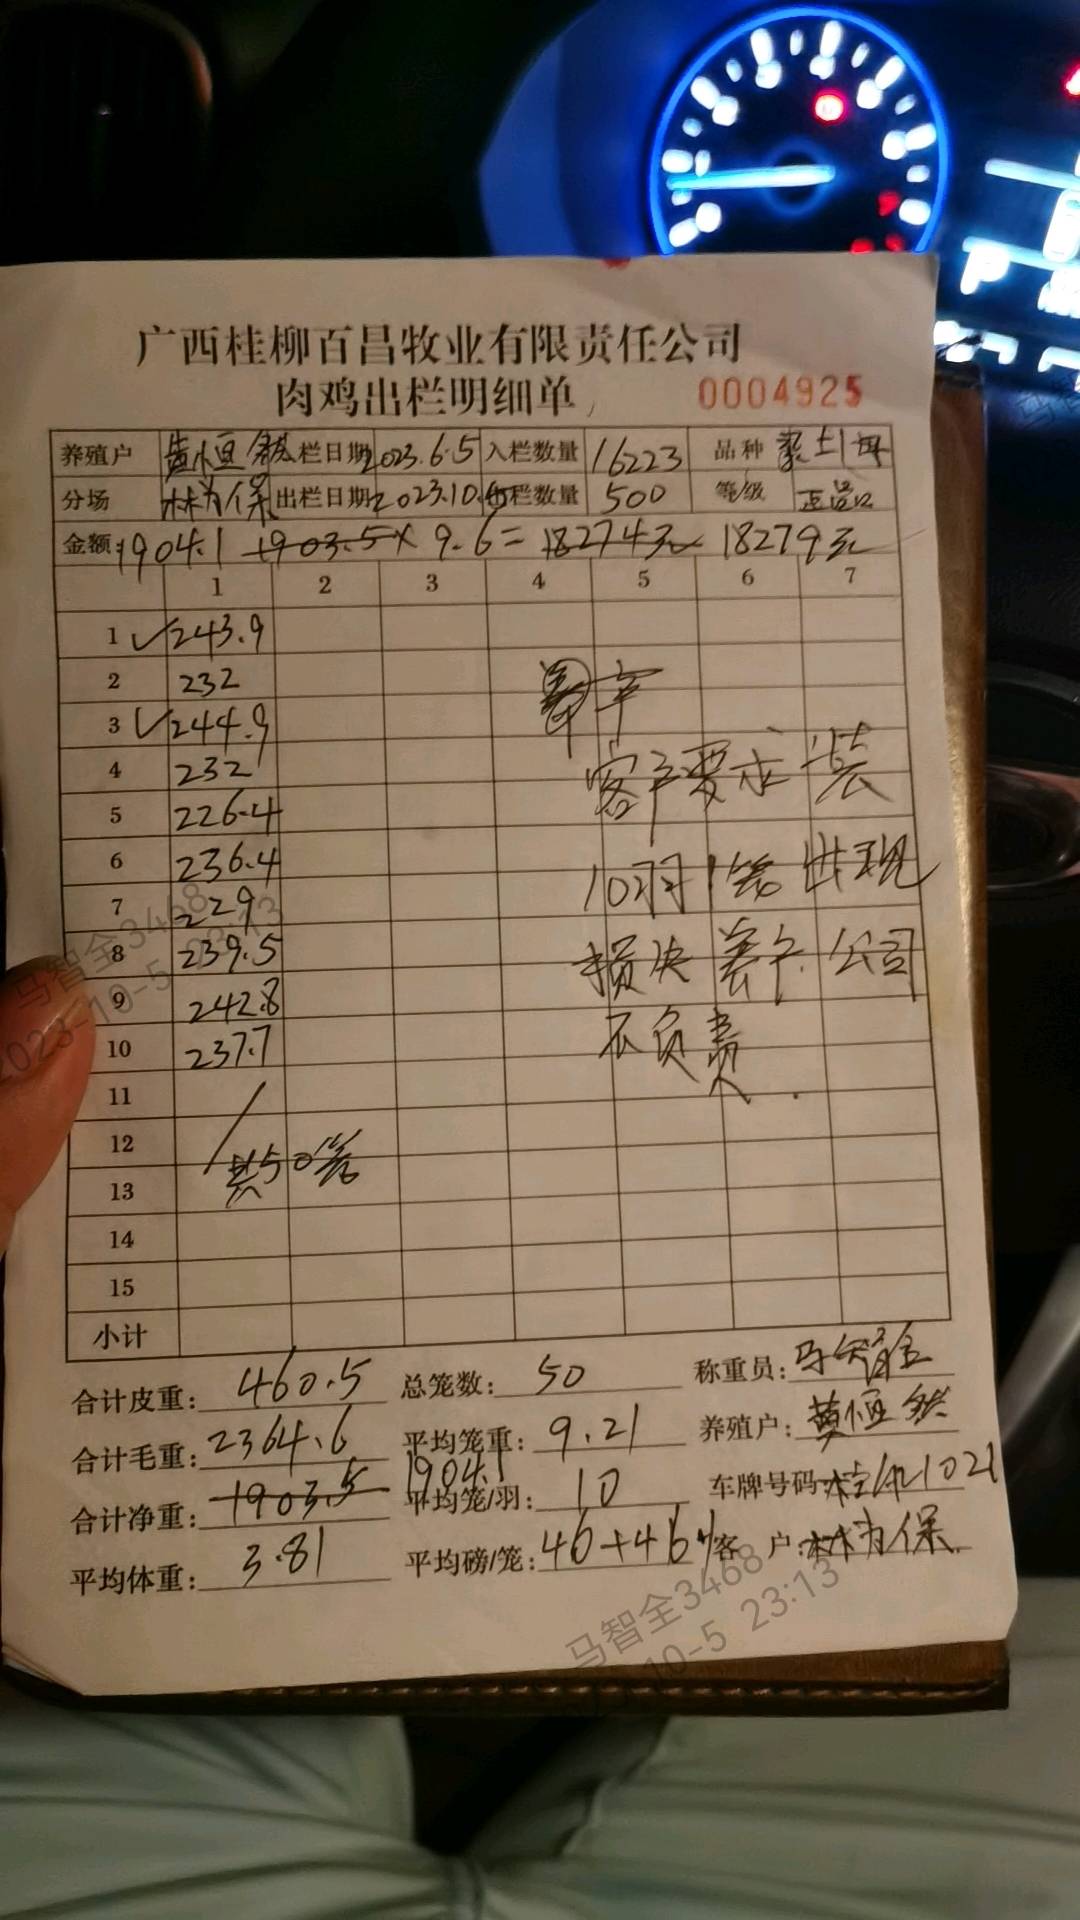 P
广西桂柳百昌牧业有限责任公司
肉鸡出栏明细单 0004925
养殖户 黄恒然 入栏日期 2023.6.5 入栏数量 16223 品种
分场 林为保 出栏日期 2023.10.5 出栏数量 500 等级 正品
金额: 1904.1 1903.5 × 9.6 = 18274元 18279元
1 2 3 4 5 6 7
1 ✓243.9
2 232
3 ✓244.9
4 232
5 226.4
6 236.4
7 229
8 239.5
9 242.8
10 237.7
11
12
13 共50笼
14
15
小计
客户要求装
10羽1笼 出现
损失 客户 公司
不负责.
合计皮重: 460.5 总笼数: 50 称重员: 马智全
合计毛重: 2364.6 平均笼重: 9.21 养殖户: 黄恒然
合计净重: 1903.5 1904.1 平均笼/羽: 10 车牌号码: 1021
平均体重: 3.81 平均磅/笼: 46+4 客户: 林为保
马智全3468
2023-10-5 23:13
马智全3468
10-5 23:13